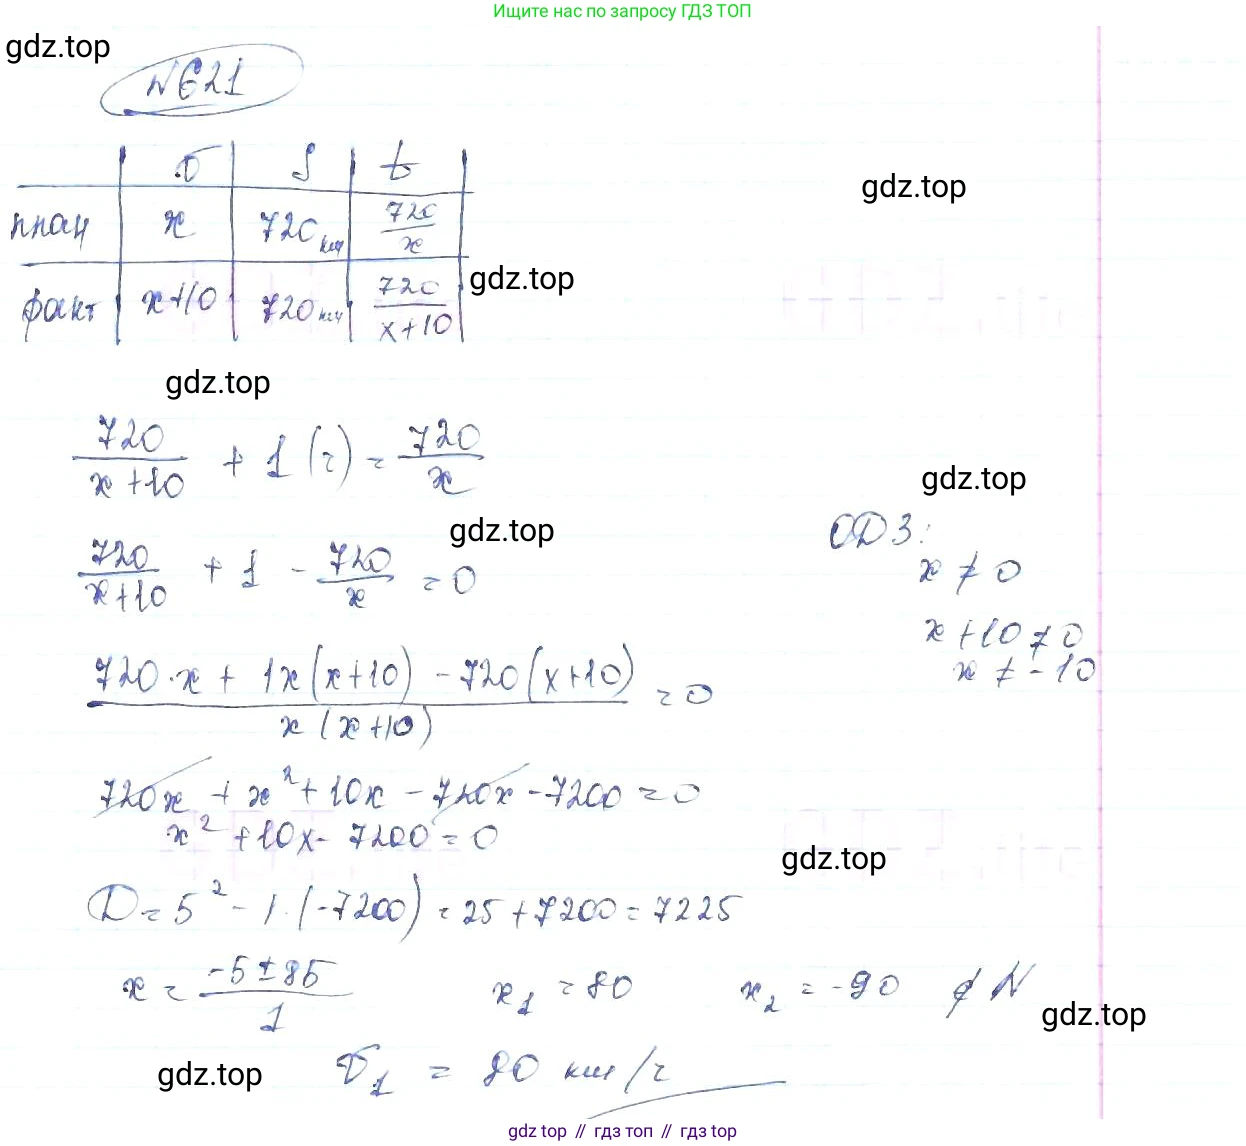 Ищите нас по запросу ГДЗ ТОП
gdz.top
N621
v S t
план x 720 км 720/x
gdz.top
факт x+10 720 км 720/(x+10)
gdz.top
gdz.top
720/(x+10) + 1 (ч) = 720/x
gdz.top
gdz.top
ОДЗ:
720/(x+10) + 1 - 720/x = 0
x ≠ 0
x+10 ≠ 0
x ≠ -10
(720·x + 1x(x+10) - 720(x+10))/(x(x+10)) = 0
720x + x² + 10x - 720x - 7200 = 0
x² + 10x - 7200 = 0
gdz.top
D = 5² - 1·(-7200) = 25 + 7200 = 7225
x = (-5 ± 85)/1 x₁ = 80 x₂ = -90 ∉ N
gdz.top
gdz.top
v₁ = 80 км/ч
gdz.top // гдз топ // гдз top